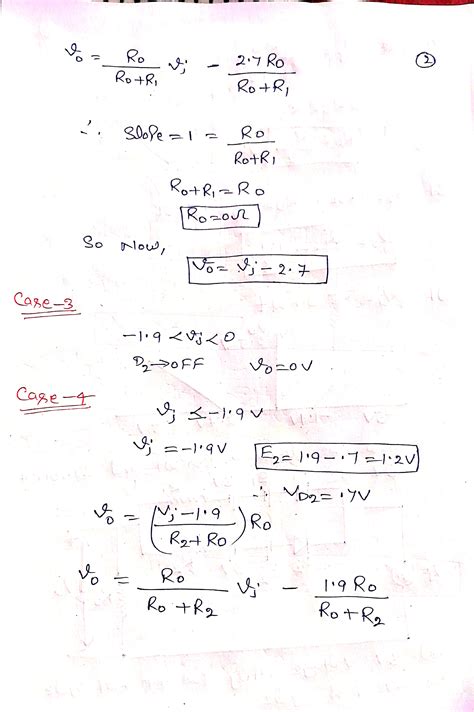 ②
v₀ = R₀/(R₀+R₁) vᵢ - 2.7 R₀/(R₀+R₁)
∴ Slope = 1 = R₀/(R₀+R₁)
R₀+R₁ = R₀
R₀=0Ω
So Now,
V₀ = vᵢ - 2.7
Case-3
-1.9 < vᵢ < 0
D₂→OFF v₀=0V
Case-4
vᵢ ≤ -1.9 V
vᵢ = -1.9V E₂= 1.9 - .7 = 1.2V
∴ V_D2 = .7V
v₀ = ((Vᵢ - 1.9)/(R₂+R₀)) R₀
v₀ = R₀/(R₀+R₂) vᵢ - 1.9 R₀/(R₀+R₂)